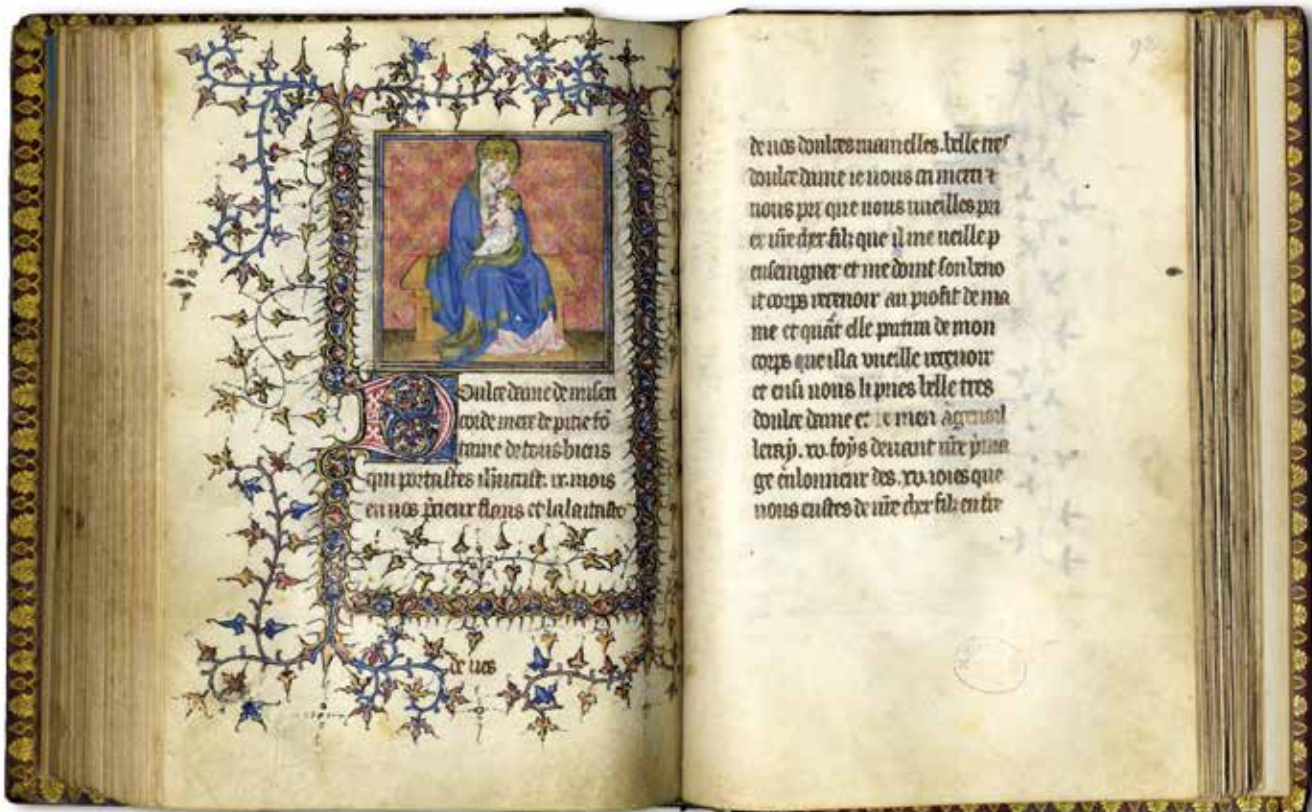 Doulce dame de miseri
corde mere de pitie fō
taine de tous biens
qui portastes ih̄ucrist .ix. mois
en vos p̄cieux flans et lalaitastes
de vos
92
de vos doulces mamelles. belle tres
doulce dame ie vous en merci et
vous pri que vous vueilles pri
er v̄re cher filz que il me veille
enseingner et me doint son beno
it corps recevoir au profit de ma
me et quāt elle partira de mon
corps que il la vueille recevoir
et ensi vous li pries belle tres
doulce dame et ie men agenoil
leray .xv. foys devant v̄re yma
ge en lonneur des .xv. ioies que
vous eustes de v̄re cher filz en ter